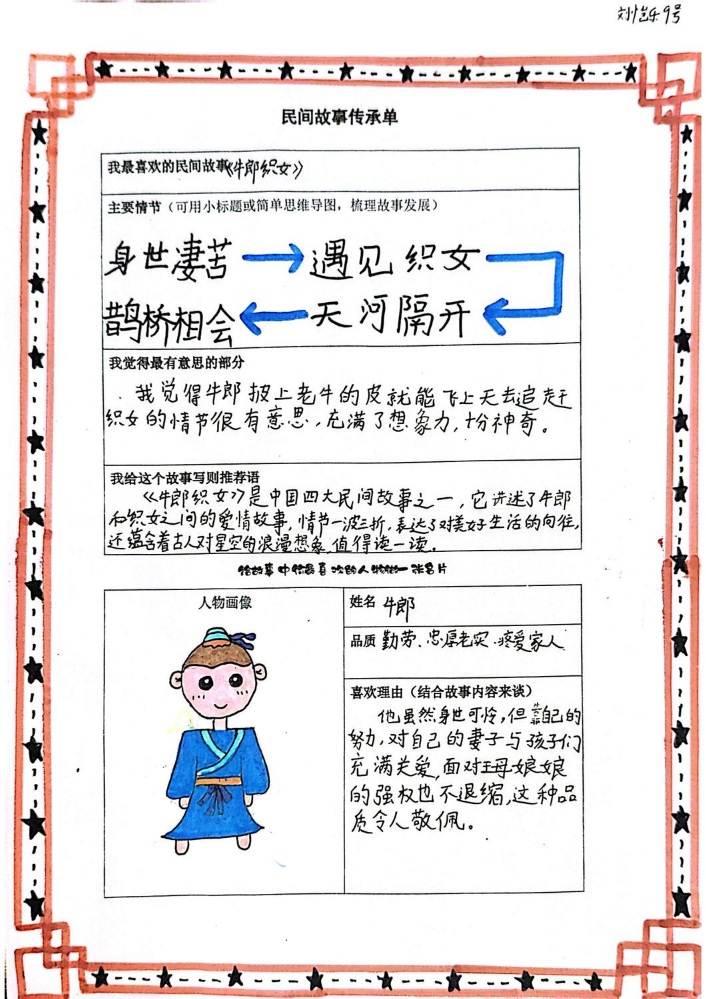 9号
民间故事传承单
我最喜欢的民间故事《牛郎织女》
主要情节（可用小标题或简单思维导图，梳理故事发展）
身世凄苦 → 遇见织女
鹊桥相会 ← 天河隔开
我觉得最有意思的部分
我觉得牛郎披上老牛的皮就能飞上天去追赶
织女的情节很有意思，充满了想象力，十分神奇。
我给这个故事写则推荐语
《牛郎织女》是中国四大民间故事之一，它讲述了牛郎
和织女之间的爱情故事，情节一波三折，表达了对美好生活的向往，
还蕴含着古人对星空的浪漫想象，值得读一读。
给故事中你最喜欢的人物做一张名片
人物画像
姓名 牛郎
品质 勤劳、忠厚老实、疼爱家人
喜欢理由（结合故事内容来谈）
他虽然身世可怜，但靠自己的
努力，对自己的妻子与孩子们
充满关爱，面对王母娘娘
的强权也不退缩，这种品
质令人敬佩。